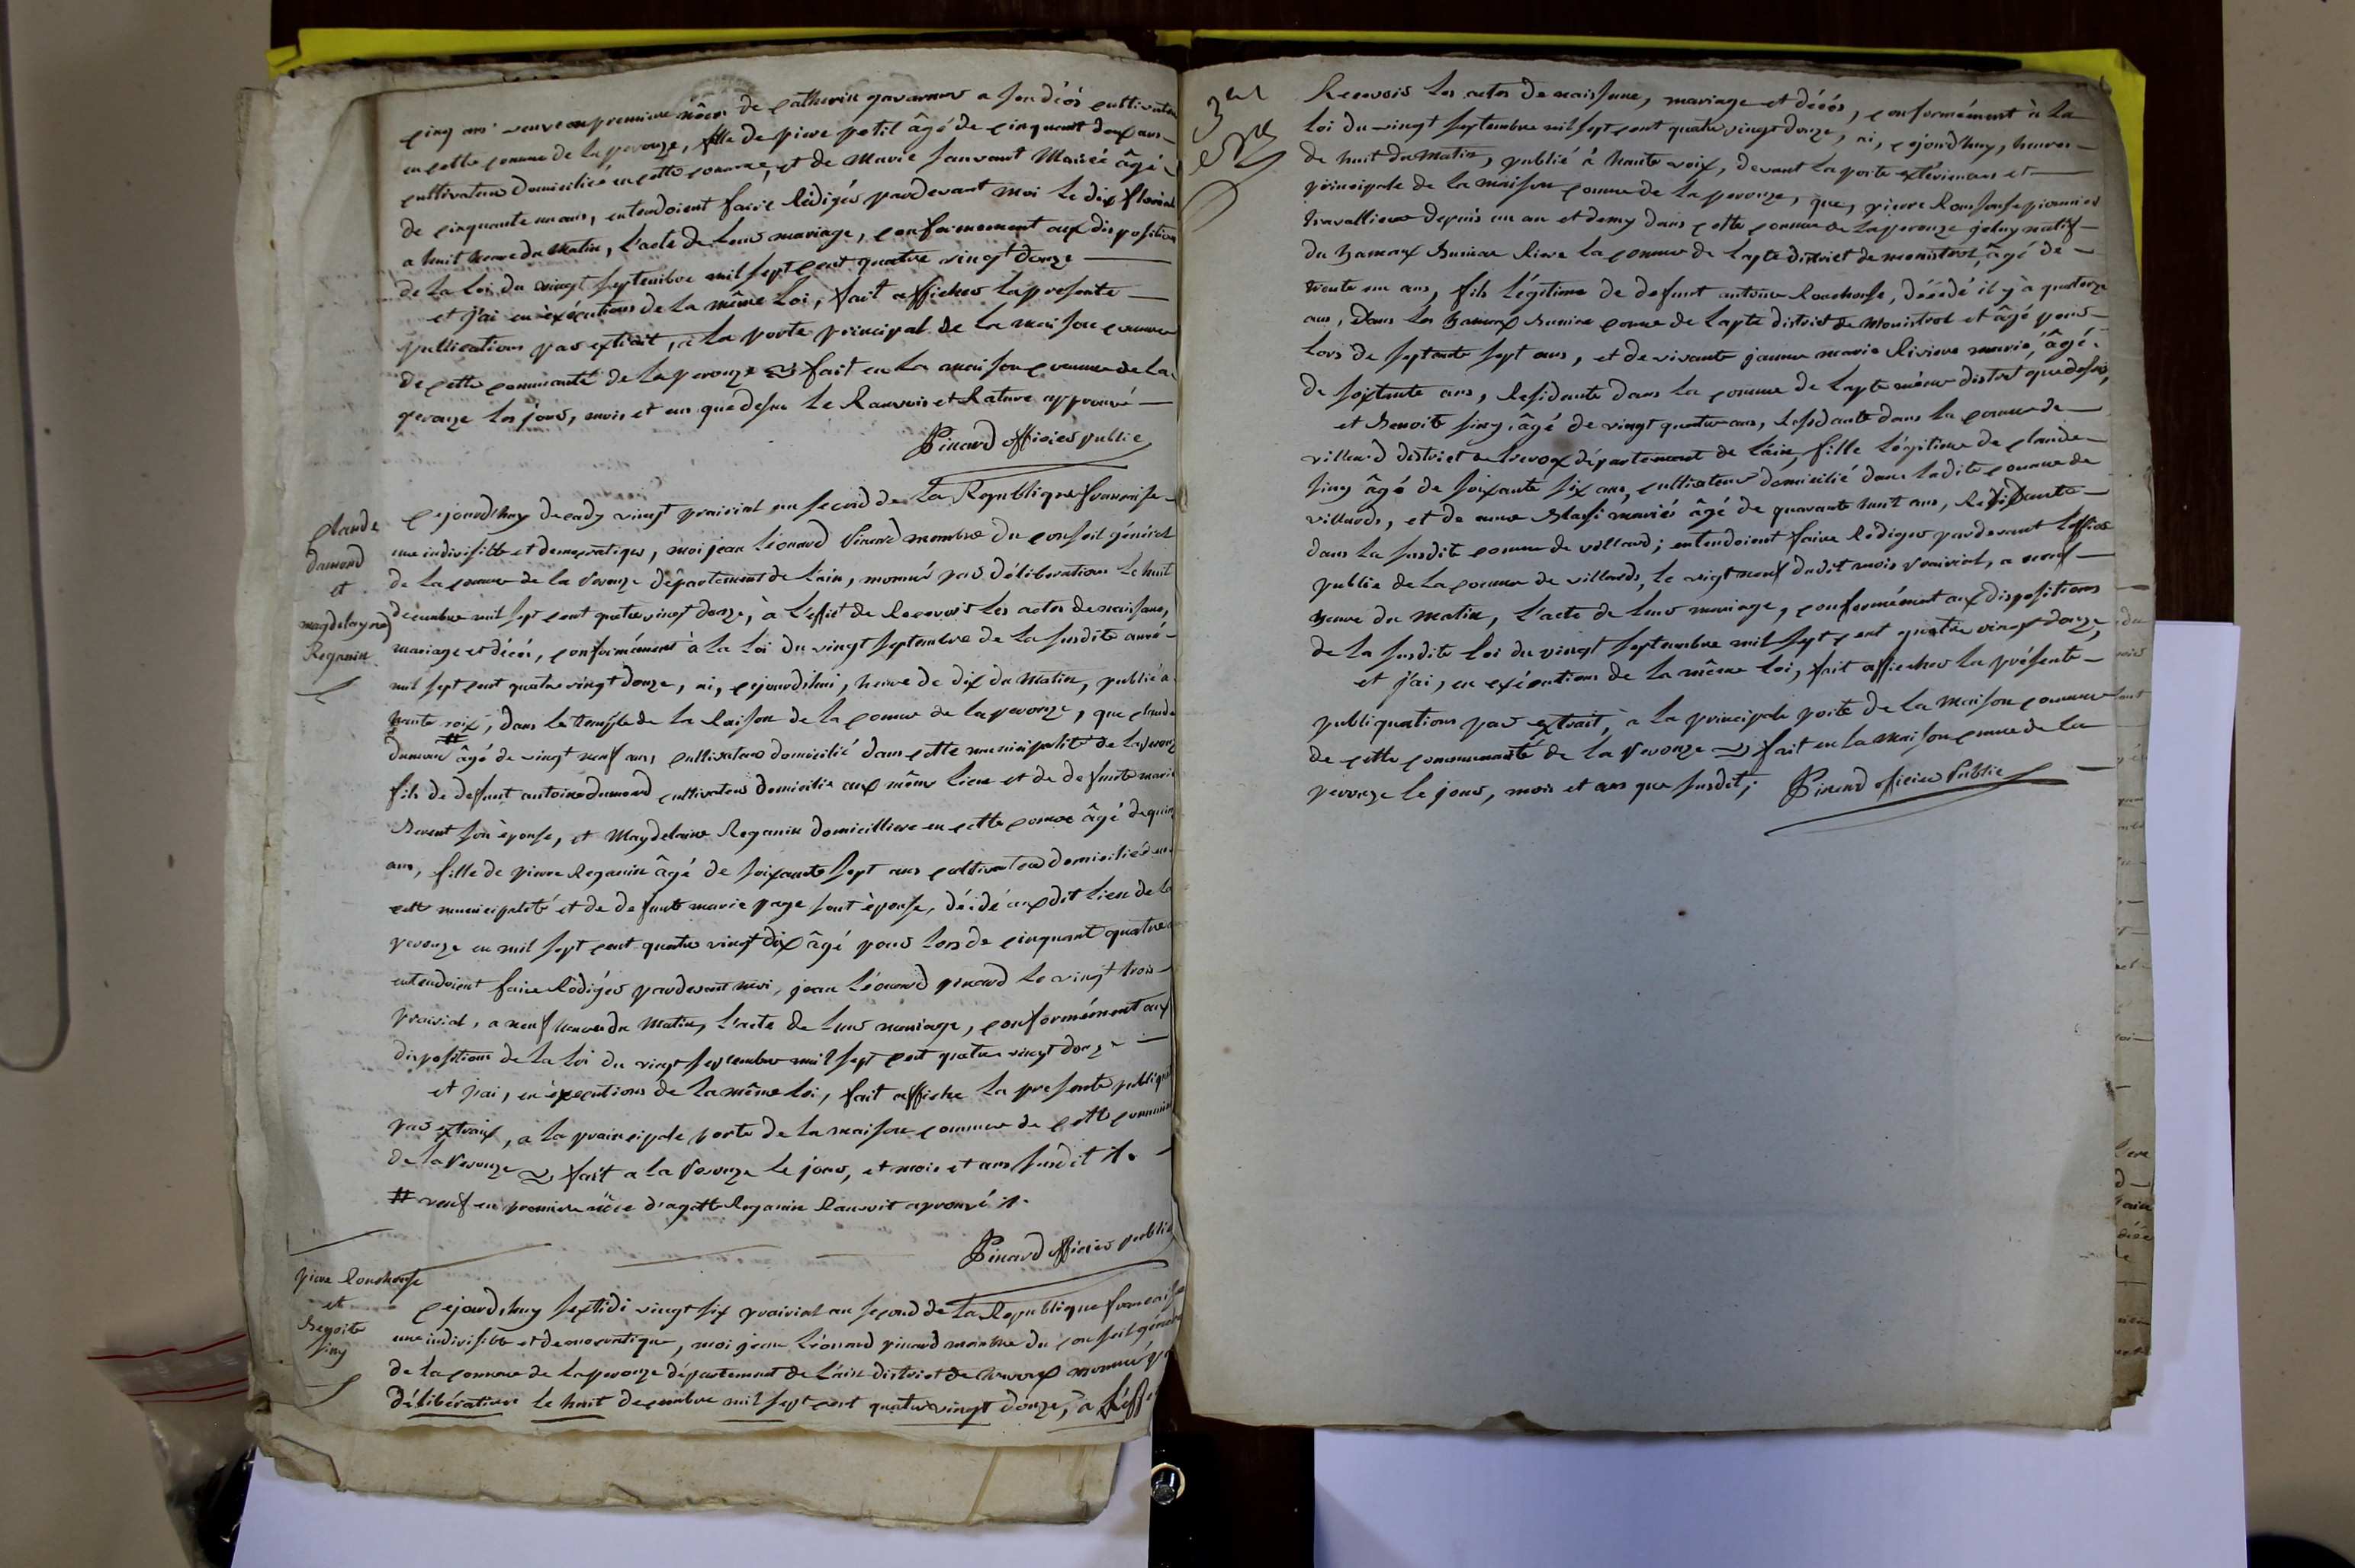 cinq ans veuve en première nôce de catherin gavarnier a son décès cultivateur
en cette comune de la perouze, fille de pierre petit âgé de cinquant deux ans
cultivateur domicilié en cette comune, et de Marie Sauvant Mariée âgé
de cinquante un ans, entendoient faire Rédiger pardevant moi le dix floréal
a huit heure du Matin, l'acte de leur mariage, conformément aux disposition
de la loi du vingt septembre mil sept cent quatre vingt douze
et j'ai en exécutions de la même loi, fait afficher la presente
publications par extrait, à la porte principal de la maison comune
de cette communauté de la perouze fait en la maison comune de la
perouze les jour, mois et an que dessus le Ranvois et Rature approuvé
Pinard officier public
Claude
Damond
et
magdelayne
Reganin
Cejourdhuy decady vingt prairial an second de La Republique francaise
une indivisible et democratique, moi jean Léonard Pinard membre du conseil général
de la comune de la Perouze département de l'ain, nommé par délibération le huit
decembre mil sept cent quatre vingt douze, à l'effet de Recevoir les actes de naissance,
mariage et décès, conformément à la loi du vingt septembre de la susdite anné
mil sept cent quatre vingt douze, ai, cejourdhui, heure de dix du matin, publié a
haute voix, dans le temple de la Raison de la comune de la perouze, que claude
dumond # âgé de vingt neuf ans, cultivateur domicilié dans cette municipalité de la Perouze
fils de defunt antoine dumond cultivateur domicilié aux même lieux et de defunte marie
son épouse, et Magdelaine Reganin domicilliere en cette comune âgé de
ans, fille de pierre Reganin âgé de soixante sept ans cultivateur domicilié en
cette municipalité et de defunte marie page sont épouse, décédé auxdit lieu de la
perouze en mil sept cent quatre vingt dix âgé pour lors de cinquant quatre
entendoient faire Rédiger pardevant moi, jean Léonard pinard le vingt trois
prairial, a neuf heure du Matin, l'acte de leur mariage, conformément aux
disposition de la loi du vingt septembre mil sept cent quatre vingt douze
et j'ai, en éxecutions de la même loi, fait affiche la presente
par extrait, a la principale porte de la maison comune de cette
de la Perouze fait a la Perouze le jour, et mois et an susdit
# veuf en première nôce d'agatte Reganin Ranvoit aprouvé
Pinard officier public
pierre Ronchonse
et
Benoite
siny
Cejourdhuy sextidi vingt six prairial an second de La Republique francaise
une indivisible et democratique, moi jean Léonard pinard membre du conseil général
de la comune de la perouze département de l'ain district de trevoux nommé par
délibération le huit decembre mil sept cent quatre vingt douze, à l'effet
Recevoir les actes de naissance, mariage et décès, conformément à la
loi du vingt septembre mil sept cent quatre vingt douze, ai, cejourdhuy, heures
de huit du matin, publié à haute voix, devant la porte extérieure et
principale de la maison comune de la perouze, que, pierre pionnier
travallieur depuis un an et demy dans cette comune de la perouze natif
du hamaux la comune de lapte district de monistrol, âgé de
trente un ans, fils légitime de defunt antoine Ronchonse, décédé il y à quatorze
ans, dans les hamaux comune de lapte district de Monistrol et âgé pour
lors de septante sept ans, et de vivante jeanne marie Riviere marié, âgé
de soixante ans, Residante dans la comune de lapte même district que dessus,
et Benoite siny âgé de vingt quatre ans, Residante dans la comune de
villard district de trevoux département de l'ain, fille légitime de claude
siny âgé de soixante six ans, cultivateur domicilié dans ladite comune de
villards, et de mariés âgé de quarante huit ans, Residante
dans la susdit comune de villard; entendoient faire Rédiger pardevant l'officier
public de la comune de villards, le vigt neuf dudit mois Prairial, a neuf
heure du matin, l'acte de leur mariage, conformément aux dispositions
de la susdite loi du vingt septembre mil sept cent quatre vingt douze,
et j'ai, en exécutions de la même loi, fait afficher la présente
publiquations par extrait, à la principale porte de la Maison comune
de cette communauté de la Perouze fait en la Maison comune de la
perouze le jour, mois et ans que susdit; Pinard officier Public